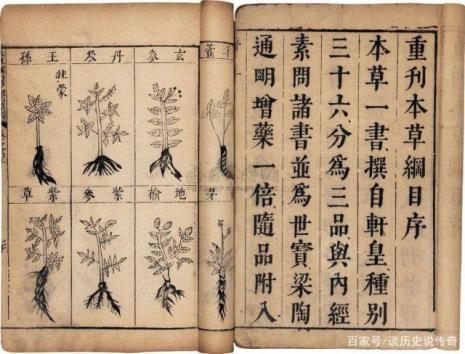 重刊本草綱目序
本草一書撰自軒皇種別
三十六分為三品與内經
素問諸書並為世寶梁陶
通明增藥一倍隨品附入
玄參
丹參
王孫
牡蒙
地榆
紫參
紫草
百家号/谈历史说传奇